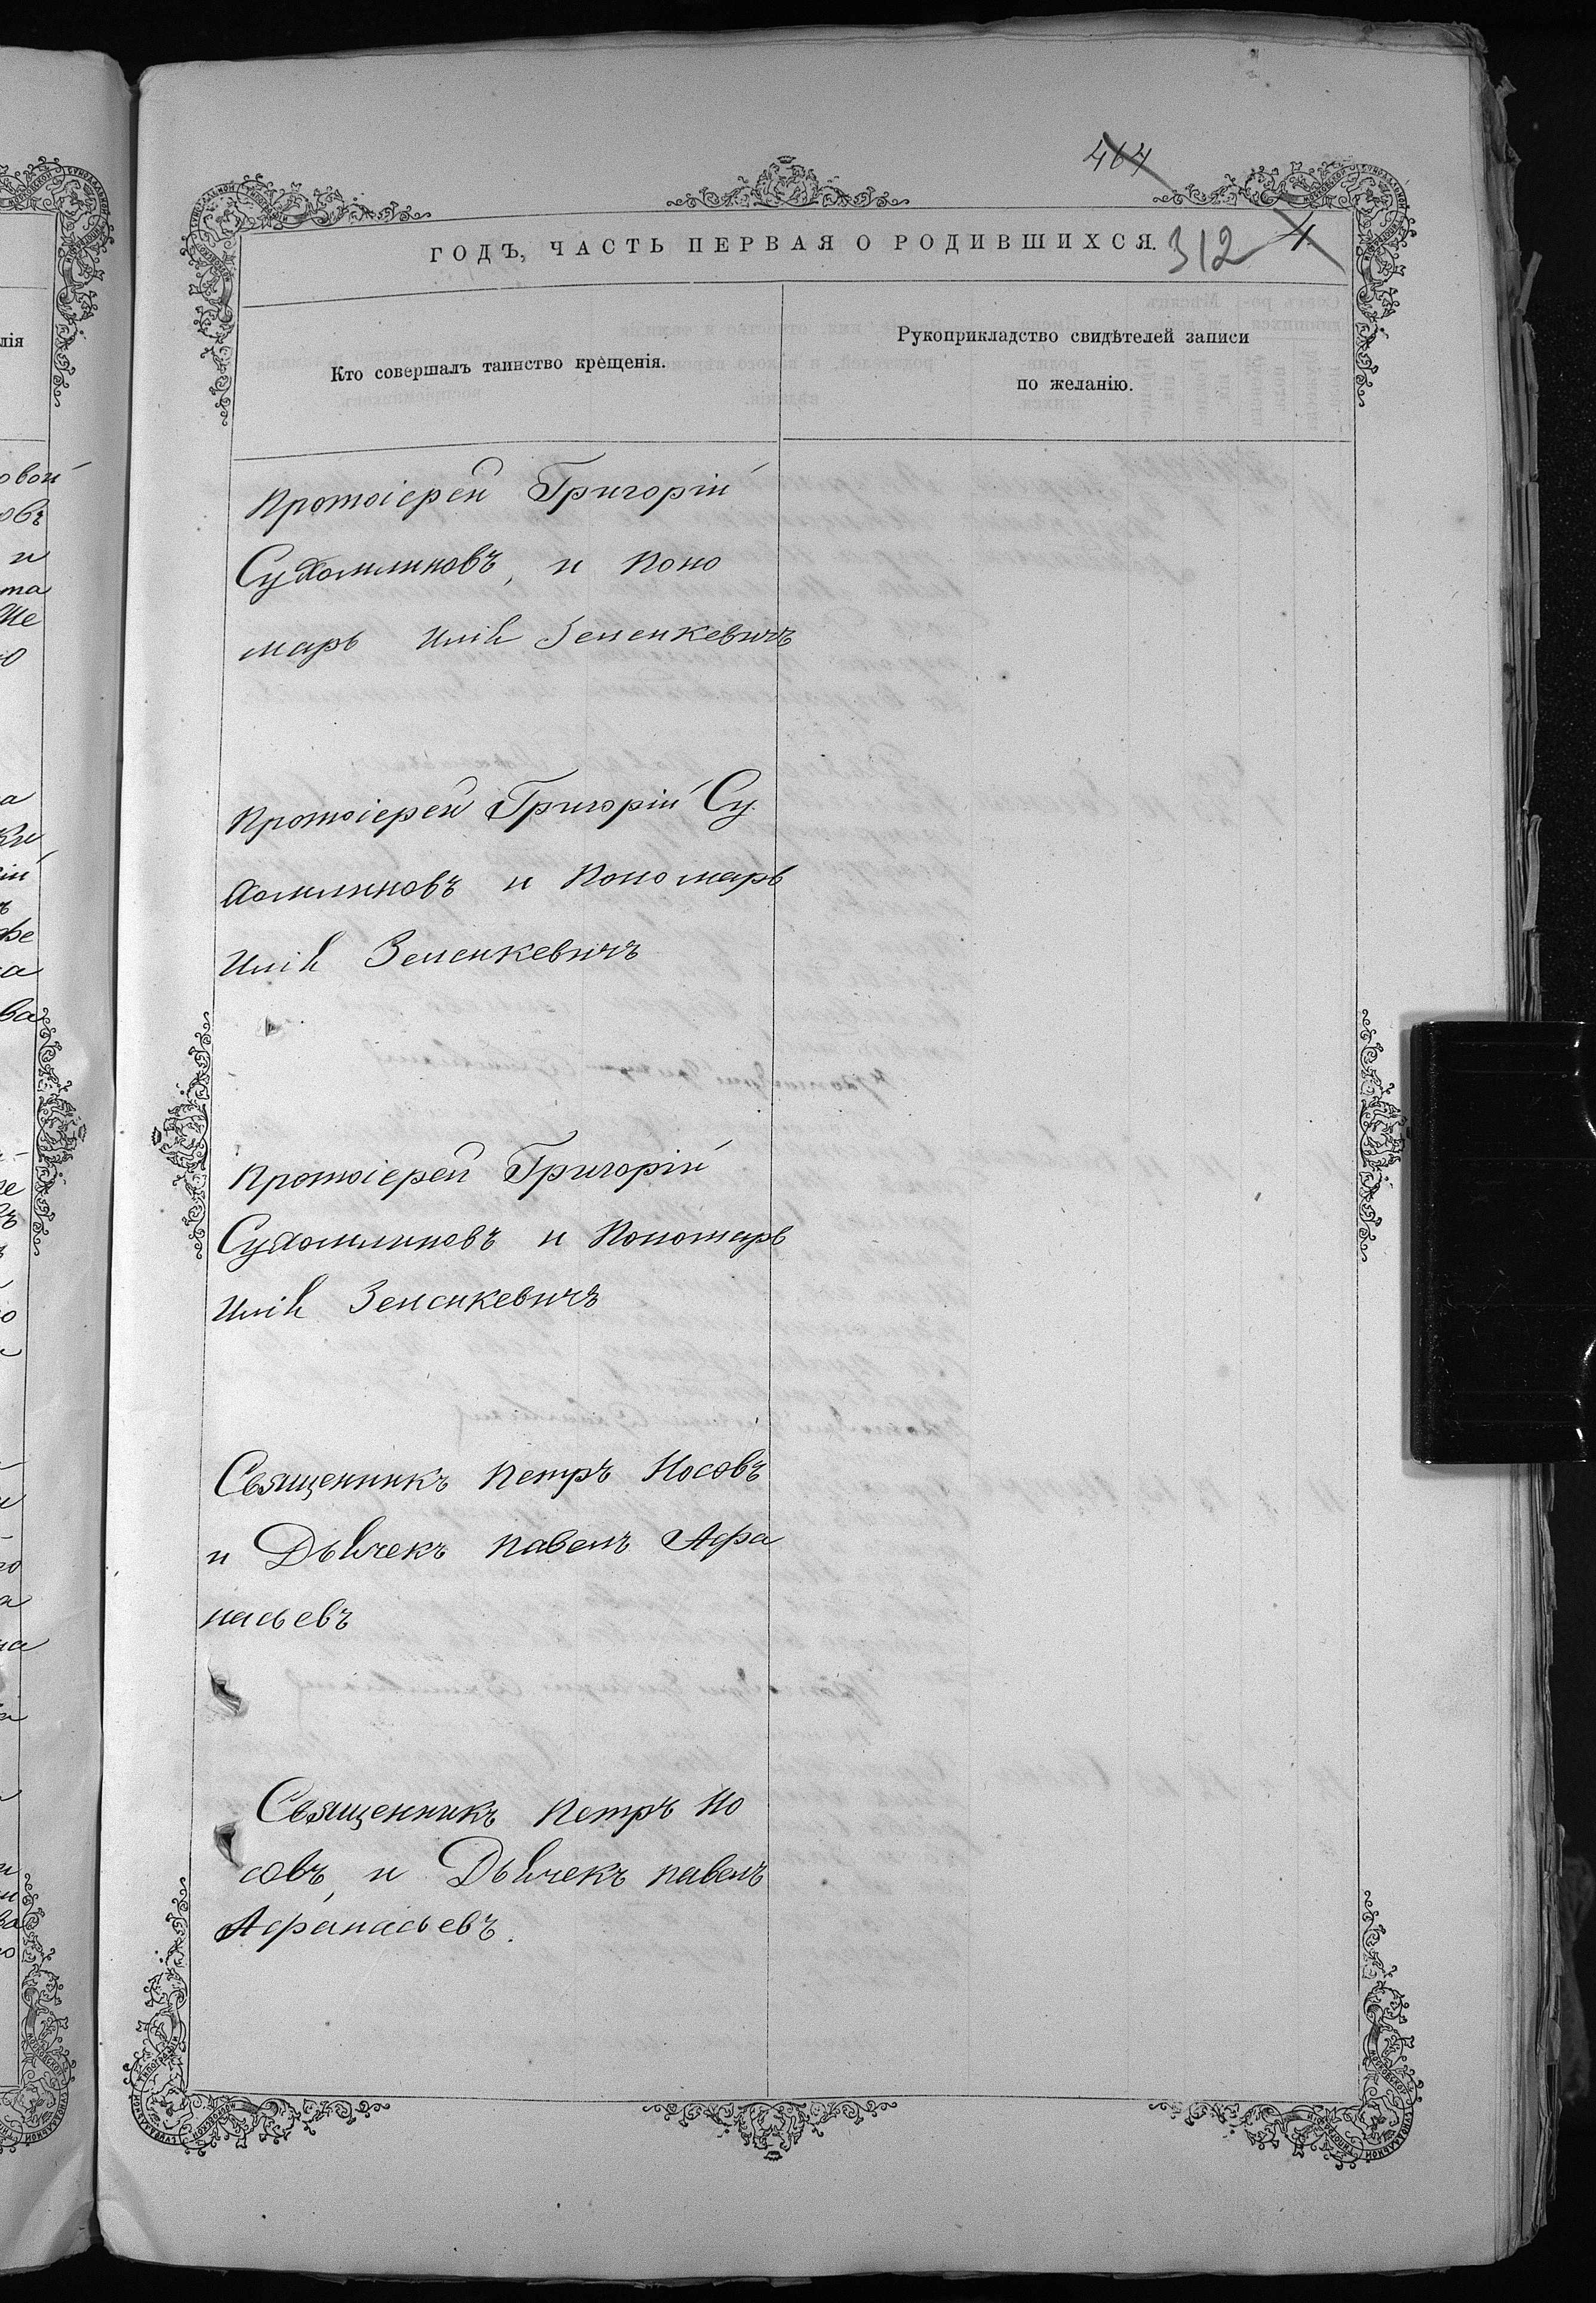 464
ГОДЪ, ЧАСТЬ ПЕРВАЯ О РОДИВШИХСЯ. 312 4
Кто совершалъ таинство крещенія.
Рукоприкладство свидѣтелей записи
по желанію.
Протоіерей Григорій
Сухомлиновъ, и Поно
марь Илія Зеленкевичъ
Протоіерей Григорій Су
хомлиновъ и Пономарь
Илія Зеленкевичъ
Протоіерей Григорій
Сухомлиновъ и Пономарь
Илія Зеленкевичъ
Священникъ Петръ Носовъ
и Дьячекъ Павелъ Афа
насьевъ
Священникъ Петръ Но
совъ, и Дьячекъ Павелъ
Афанасьевъ.